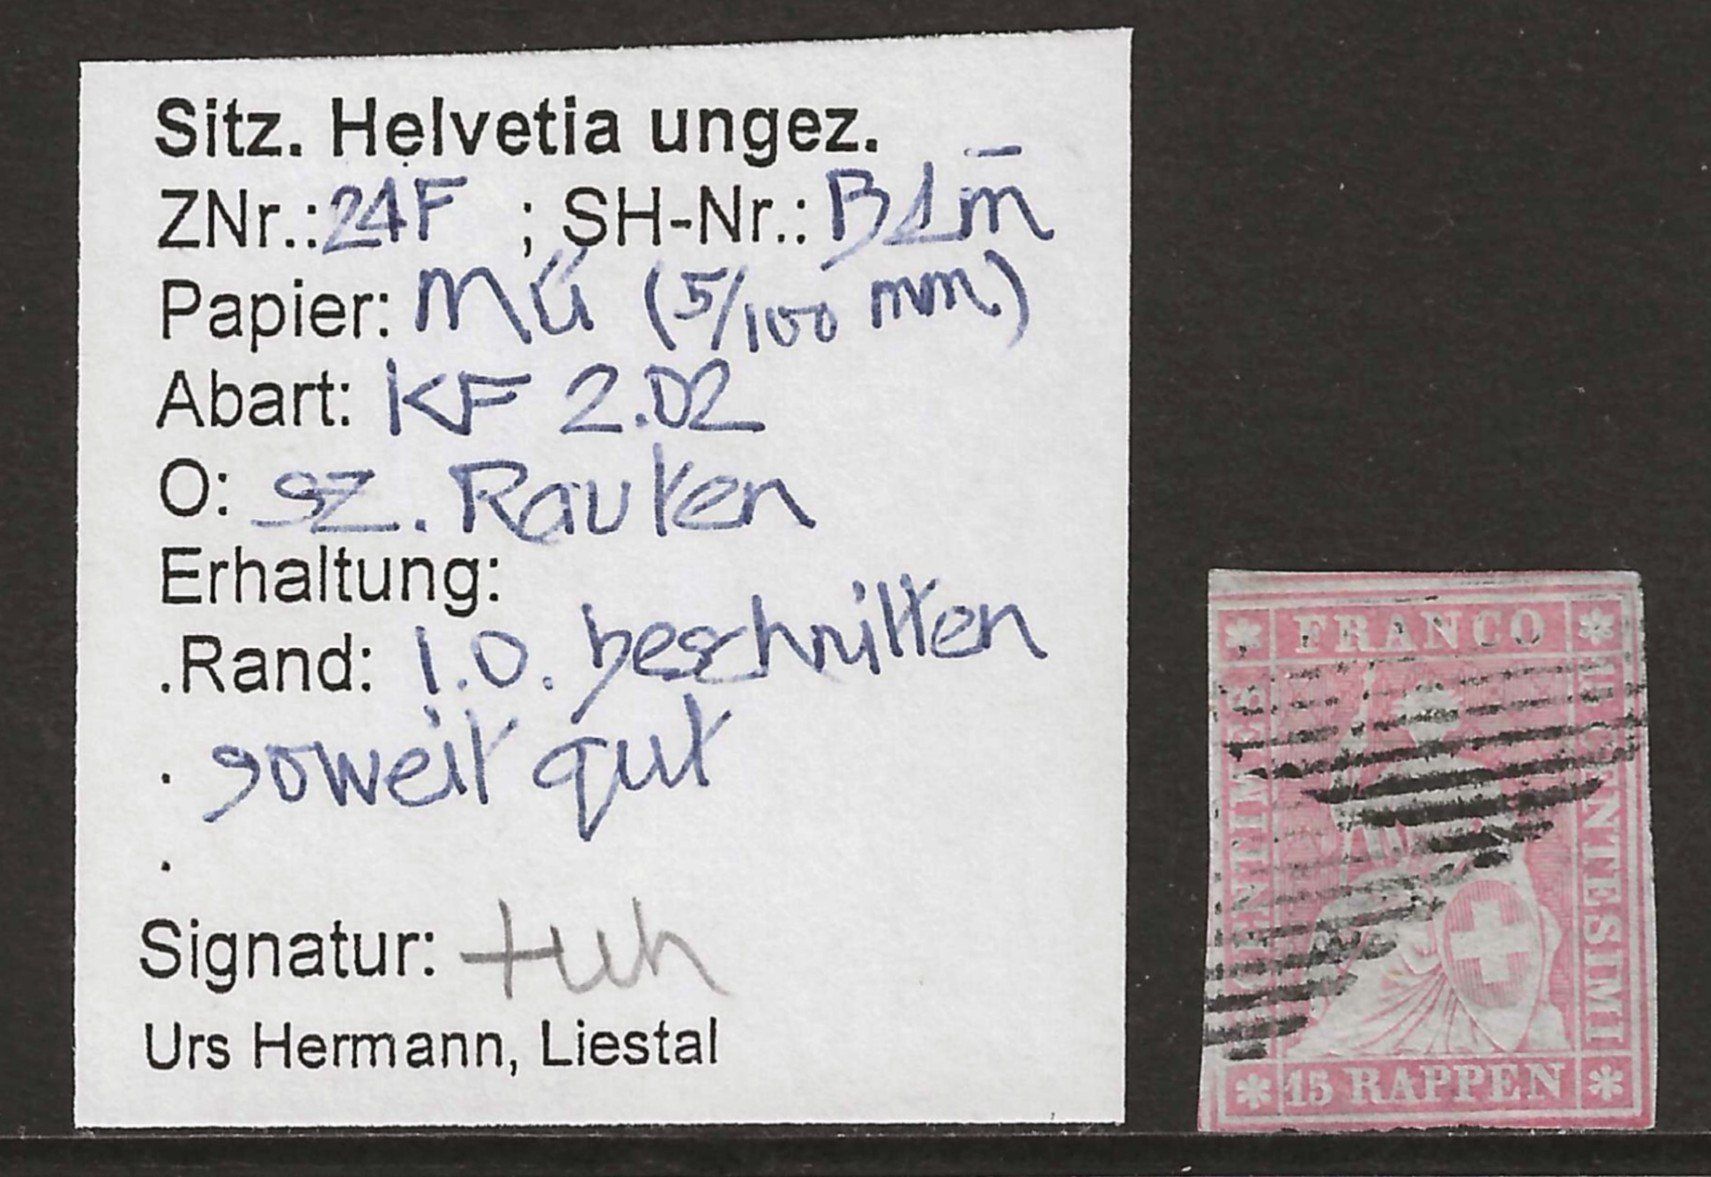 Sitz. Helvetia ungez.
ZNr.: 24F ; SH-Nr.: B1m̅
Papier: Mü (5/100 mm)
Abart: KF 2.02
O: sz. Rauten
Erhaltung:
.Rand: l.o. beschnitten
. soweit gut
.
Signatur: +uh
Urs Hermann, Liestal
FRANCO
CENTIMES
CENTESIMI
15 RAPPEN